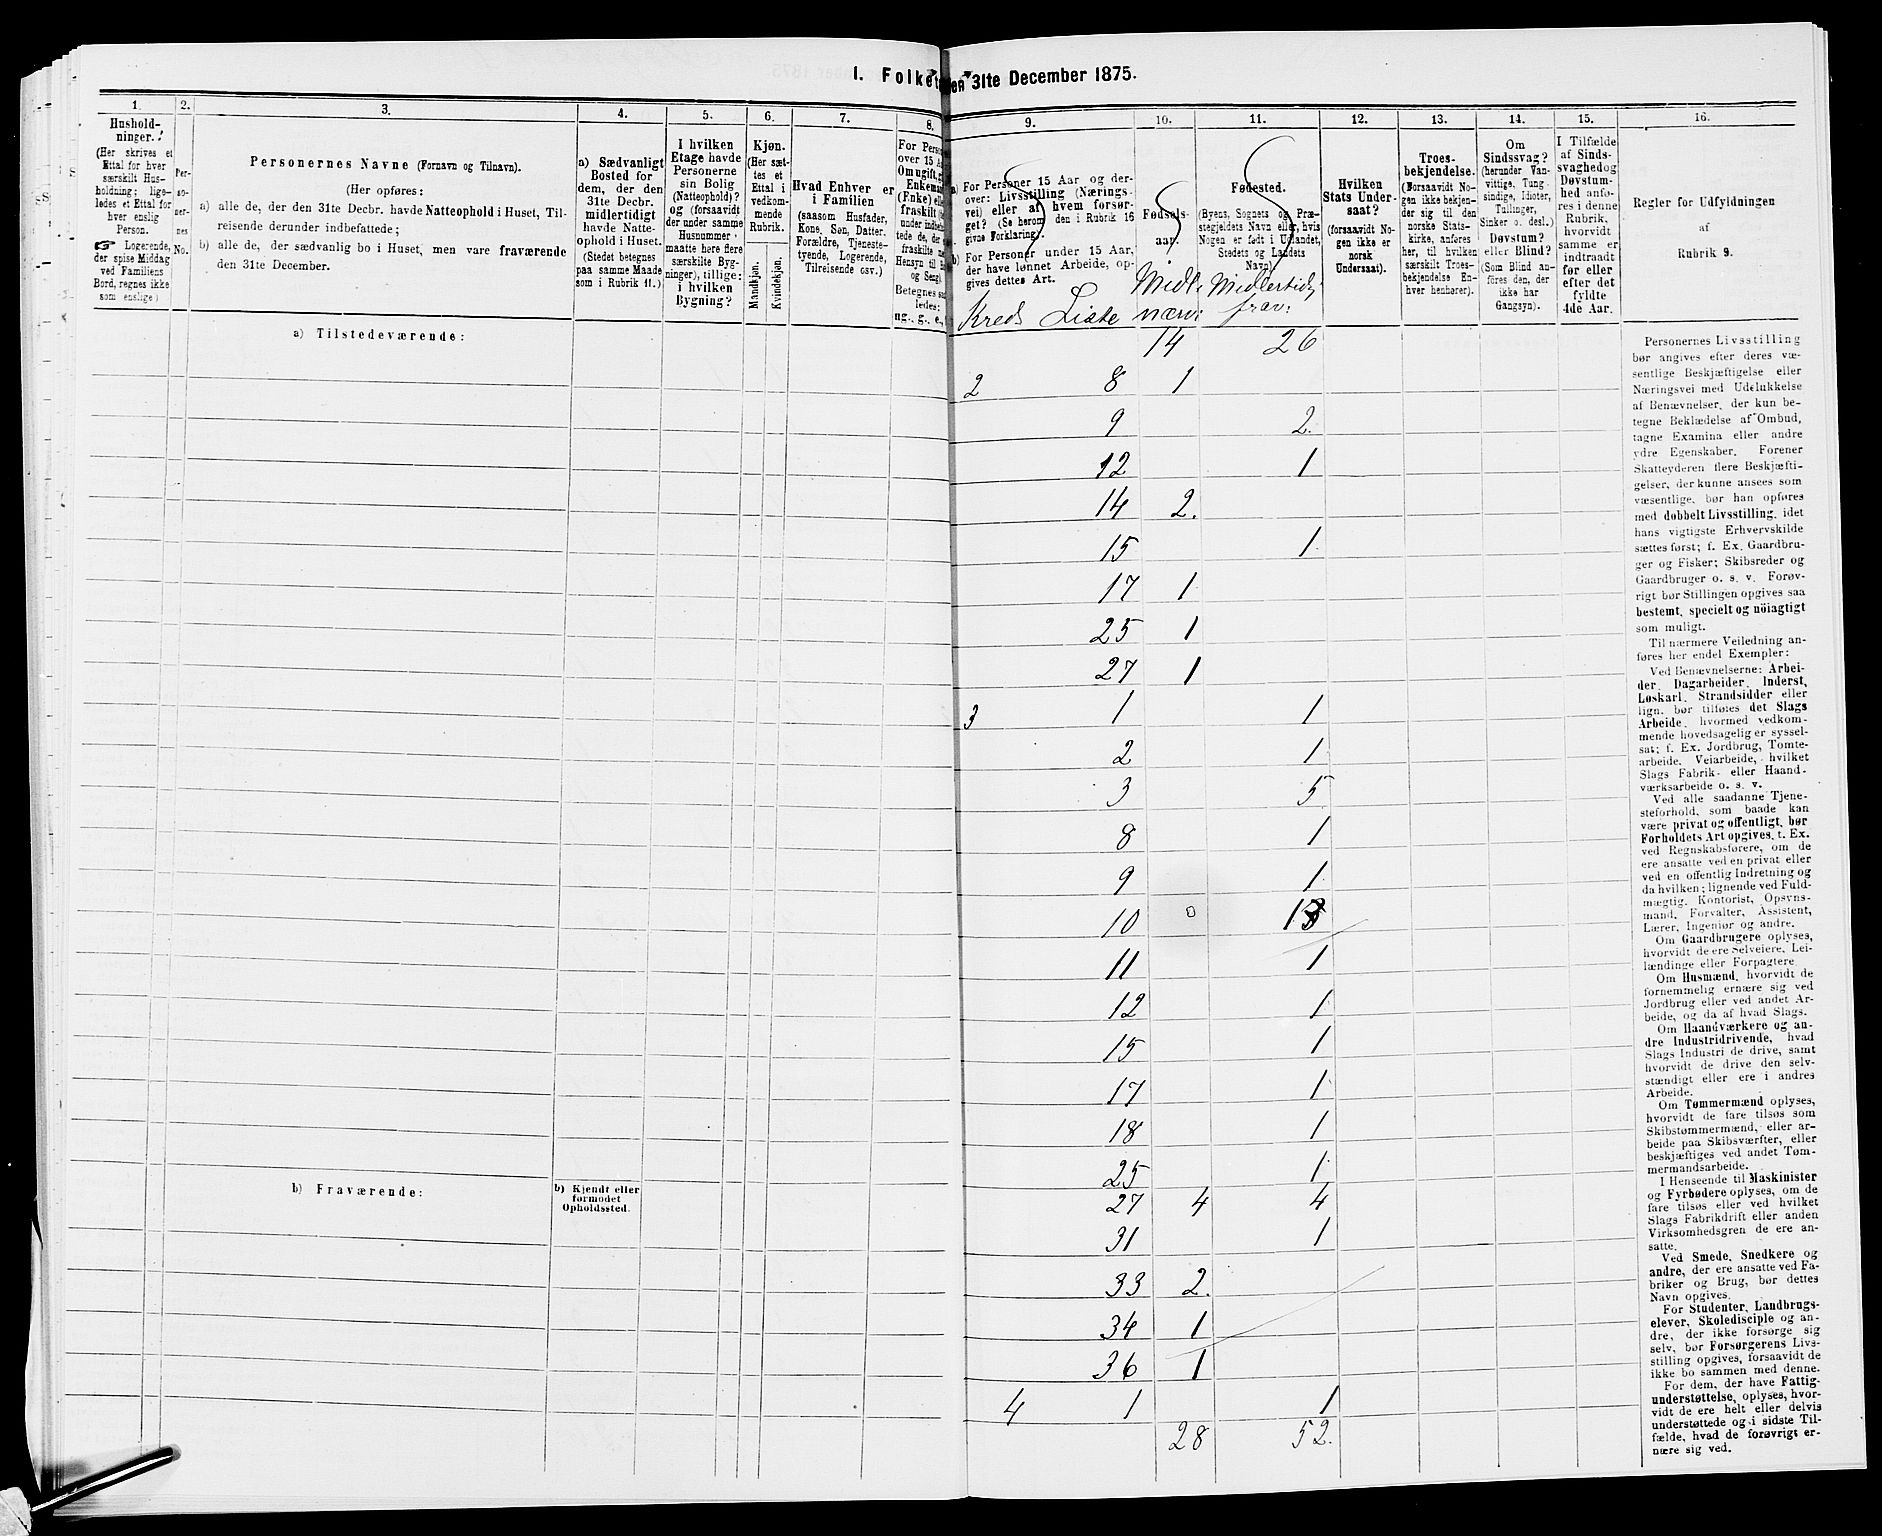 I. Folketællingen 31te December 1875.
1.
2.
3.
4.
5.
6.
7.
8.
9.
10.
11.
12.
13.
14.
15.
16.
Hushold-
ninger.
(Her skrives et
Ettal for hver
særskilt Hus-
holdning; lige-
ledes et Ettal for
hver enslig
Person.
☞ Logerende,
der spise Middag
ved Familiens
Bord, regnes ikke
som enslige)
Per-
so-
ner-
nes
No.
Personernes Navne (Fornavn og Tilnavn).
(Her opføres:
a) alle de, der den 31te Decbr. havde Natteophold i Huset, Til-
reisende derunder indbefattede;
b) alle de, der sædvanlig bo i Huset, men vare fraværende
den 31te December.
a) Sædvanligt
Bosted for
dem, der den
31te Decbr.
midlertidigt
havde Natte-
ophold i Huset.
(Stedet betegnes
paa samme Maade
som i Rubrik 11.)
I hvilken
Etage havde
Personerne
sin Bolig
(Natteophold)?
og (forsaavidt
der under samme
Husnummer
maatte høre flere
særskilte Byg-
ninger), tillige:
i hvilken
Bygning?
Kjøn.
(Her sæt-
tes et
Ettal i
vedkom-
mende
Rubrik.
Mandkjøn.
Kvindekjøn.
Hvad Enhver er
i Familien
(saasom Husfader,
Kone, Søn, Datter,
Forældre, Tjeneste-
tyende, Logerende,
Tilreisende osv.)
For Perso
over 15 Aa
Om ugift, g
Enkema
(Enke) elle
fraskilt
under indb
tede de, der
fraskilte
Hensyn til B
og Seng).
Betegnes saa
ledes:
ug., g., e.,
a) For Personer 15 Aar og der-
over: Livsstilling (Nærings-
vei) eller af hvem forsør-
get? (Se herom
den i Rubrik 16
givne Forklaring).
b) For Personer under 15 Aar,
der have lønnet Arbeide, op-
gives dettes Art.
Fødsels-
aar.
Fødested.
(Byens, Sognets og Præ-
stegjeldets Navn eller, hvis
Nogen er født i Udlandet,
Stedets og Landets
Navn)
Hvilken
Stats Under-
saat?
(forsaavidt No-
gen ikke er
norsk
Undersaat).
Troes-
bekjendelse.
(Forsaavidt No-
gen ikke bekjen-
der sig til den
norske Stats-
kirke, anføres
her, til hvilken
særskilt Troes-
bekjendelse En-
hver henhører).
Om
Sindssvag?
(herunder Van-
vittige, Tung-
sindige, Idioter,
Tullinger,
Sinker o. desl.)
Døvstum?
eller Blind?
(Som Blind an-
føres den, der
ikke har
Gangsyn).
I Tilfælde
af Sinds-
svaghed og
Døvstum-
hed anfø-
res i denne
Rubrik,
hvorvidt
samme er
indtraadt
før eller
efter det
fyldte
4de Aar.
Regler for Udfyldningen
af
Rubrik 9.
Kreds Liste Midl. nærv: Midlertidig frav:
a) Tilstedeværende:
14 26
2 8 1
9 2.
12 1
14 2.
15 1
17 1
25 1
27 1
3 1 1
2 1
3 5
8 1
9 1
10 13
11 1
12 1
15 1
17 1
18 1
25 1
b) Fraværende:
b) Kjendt eller
formodet
Opholdssted.
27 4 4
31 1
33 2.
34 1
36 1
4 1 1
28 52.
Personernes Livsstilling
bør angives efter deres væ-
sentlige Beskjæftigelse eller
Næringsvei med Udelukkelse
af Benævnelser, der kun be-
tegne Beklædelse af Ombud,
tagne Examina eller andre
ydre Egenskaber. Forener
Skatteyderen flere Beskjæfti-
gelser, der kunne ansees som
væsentlige, bør han opføres
med dobbelt Livsstilling, idet
hans vigtigste Erhvervskilde
sættes først; f. Ex. Gaardbru-
ger og Fisker; Skibsreder og
Gaardbruger o. s. v. Forøv-
rigt bør Stillingen opgives saa
bestemt, specielt og nöiagtigt
som muligt.
Til nærmere Veiledning an-
føres her endel Exempler:
Ved Benævnelserne: Arbei-
der, Dagarbeider, Inderst,
Løskarl, Strandsidder eller
lign. bør tilføies det Slags
Arbeide, hvormed vedkom-
mende hovedsagelig er syssel-
sat; f. Ex. Jordbrug, Tomte-
arbeide, Veiarbeide, hvilket
Slags Fabrik- eller Haand-
værksarbeide o. s. v.
Ved alle saadanne Tjene-
steforhold, som baade kan
være privat og offentligt, bør
Forholdets Art opgives, t. Ex.
ved Regnskabsførere, om de
ere ansatte ved en privat eller
ved en offentlig Indretning og
da hvilken; lignende ved Fuld-
mægtig, Kontorist, Opsyns-
mand, Forvalter, Assistent,
Lærer, Ingeniør og andre.
Om Gaardbrugere oplyses,
hvorvidt de ere Selveiere, Lei-
lændinge eller Forpagtere.
Om Husmænd, hvorvidt de
fornemmelig ernære sig ved
Jordbrug eller ved andet Ar-
beide, og da af hvad Slags.
Om Haandværkere og an-
dre Industridrivende, hvad
Slags Industri de drive, samt
hvorvidt de drive den selv-
stændigt eller ere i andres
Arbeide.
Om Tømmermænd oplyses,
hvorvidt de fare tilsøs som
Skibstømmermænd, eller ar-
beide paa Skibsværfter, eller
beskjæftiges ved andet Tøm-
mermandsarbeide.
I Henseende til Maskinister
og Fyrbødere oplyses, om de
fare tilsøs eller ved hvilket
Slags Fabrikdrift eller anden
Virksomhedsgren de ere an-
satte.
Ved Smede, Snedkere og
andre, der ere ansatte ved Fa-
briker og Brug, bør dettes
Navn opgives.
For Studenter, Landbrugs-
elever, Skoledisciple og an-
dre, der ikke forsørge sig
selv, bør Forsørgerens Livs-
stilling opgives, forsaavidt de
ikke bo sammen med denne.
For dem, der have Fattig-
understøttelse, oplyses, hvor-
vidt de ere helt eller delvis
understøttede og i sidste Til-
fælde, hvad de forøvrigt er-
nære sig ved.